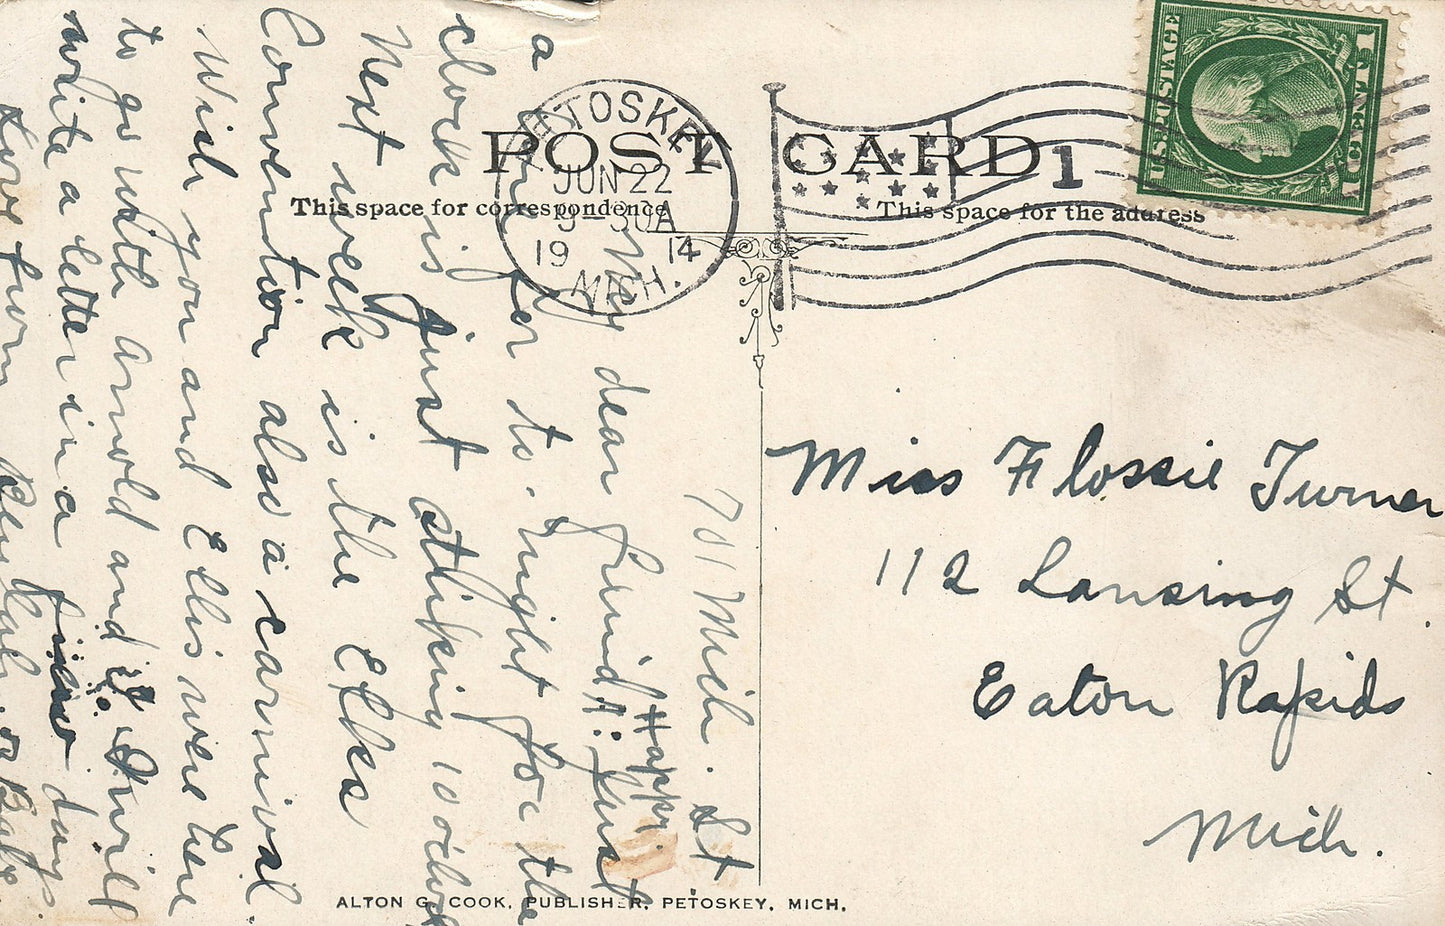 POST CARD
This space for correspondence
This space for the address
PETOSKEY
JUN 22
9-30A
19 14
MICH.
1
U.S. POSTAGE
1 CENT 1
Miss Flossie Turner
112 Lansing St.
Eaton Rapids
Mich.
701 Mich. St
Happy
My dear friend: Just
a line or to-night for the
clock is just striking 10 o'clock
Next week is the Elks
Convention also a carnival
Wish you and Ellis were here
to go with Arnold and I. I will
write a letter in a few days
Love from
ALTON G. COOK, PUBLISHER, PETOSKEY, MICH.